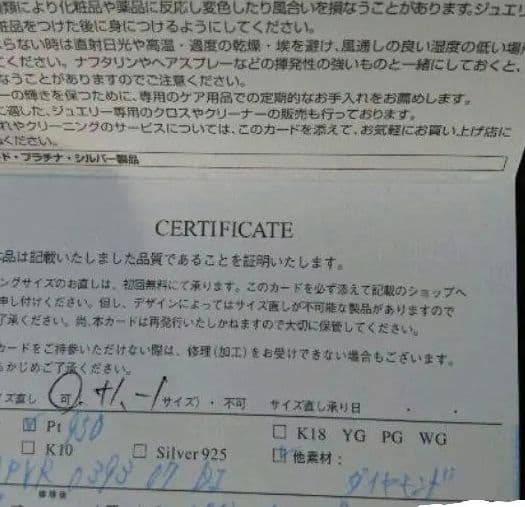 類により化粧品や薬品に反応し変色したり風合いを損なうことがあります。ジュエリ
粧品をつけた後に身につけるようにしてください。
らない時は直射日光や高温・過度の乾燥・埃を避け、風通しの良い湿度の低い場所
てください。ナフタリンやヘアスプレーなどの揮発性の強いものと一緒にしておくと、
なうことがありますのでご注意ください。
ーの輝きを保つために、専用のケア用品での定期的なお手入れをお薦めします。
に適した、ジュエリー専用のクロスやクリーナーの販売も行っております。
れやクリーニングのサービスについては、このカードを添えて、お気軽にお買い上げ店に
ください。
ド・プラチナ・シルバー製品
CERTIFICATE
本品は記載いたしました品質であることを証明いたします。
ングサイズのお直しは、初回無料にて承ります。このカードを必ず添えて記載のショップへ
申し付けください。但し、デザインによってはサイズ直しが不可能な製品がありますので
了承ください。尚、本カードは再発行いたしかねますので大切に保管してください。
カードをご持参いただけない際は、修理(加工)をお受けできない場合もございます。
らかじめご了承ください。
イズ直し 可・+1、-1 サイズ)・不可 サイズ直し承り日 ・ ・
Pt 950 K18 YG PG WG
K10 Silver925 他素材:
ダイヤモンド
修理後